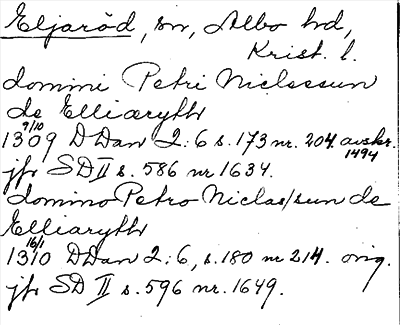 Eljaröd, sn, Albo hd,
Krist. l.
domini Petri Niclessun
de Elliaryth
9/10
1309 DDan 2:6 s. 173 nr. 204. avskr.
1494
jfr SD II s. 586 nr 1634.
domino Petro Niclas/sun de
Elliaryth
16/1
1310 DDan 2:6, s. 180 nr 214. orig.
jfr SD II s. 596 nr. 1649.